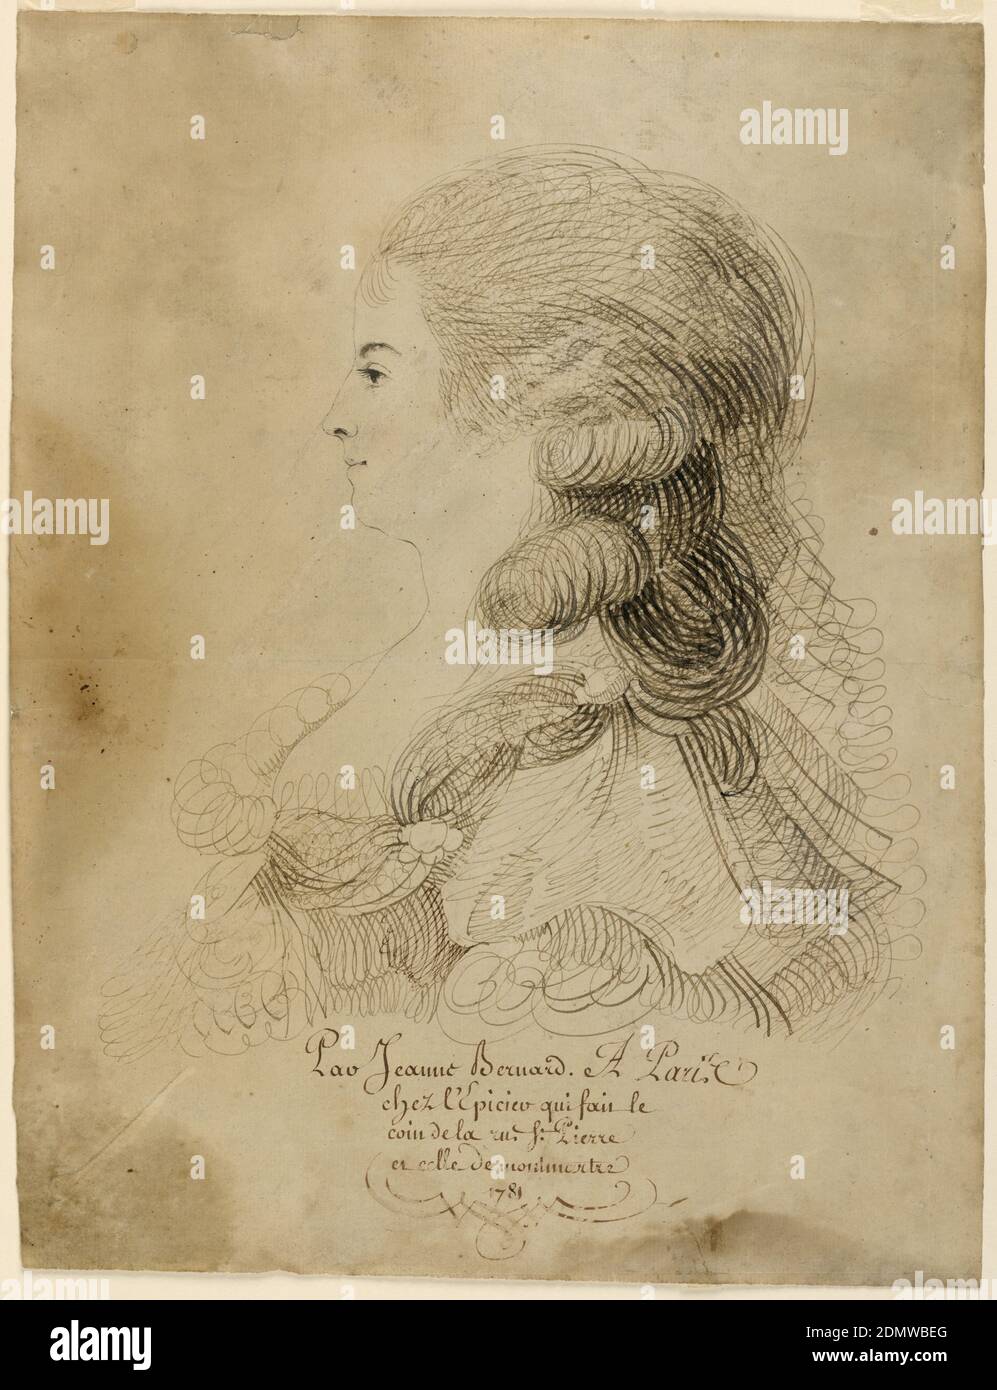 Par Jeanne Bernard. A Paris
chez l'Epicier qui fait le
coin de la rue St. Pierre
et celle de montmartre
1781
alamy
alamy
alamy
alamy
alamy
alamy
alamy
Image ID: 2DMWBEG
www.alamy.com